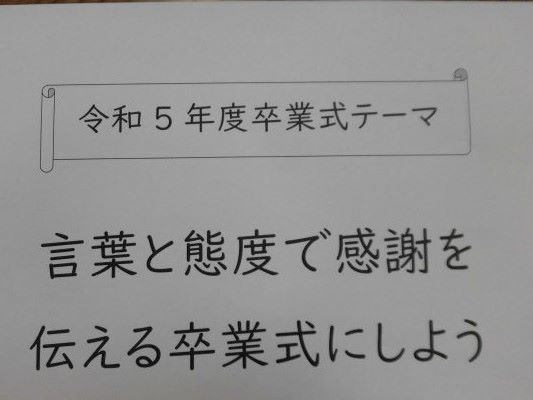 令和5年度卒業式テーマ
言葉と態度で感謝を
伝える卒業式にしよう